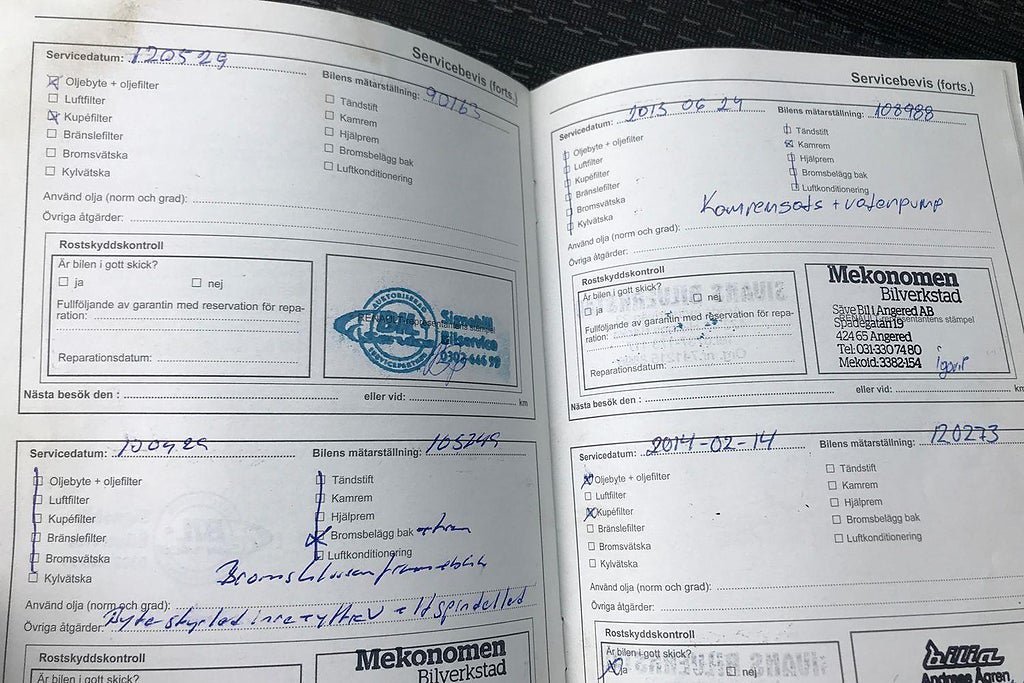 Servicebevis (forts.)
Servicedatum: 120529
Bilens mätarställning: 90163
Oljebyte + oljefilter
Luftfilter
Kupéfilter
Bränslefilter
Bromsvätska
Kylvätska
Tändstift
Kamrem
Hjälprem
Bromsbelägg bak
Luftkonditionering
Använd olja (norm och grad):
Övriga åtgärder:
Rostskyddskontroll
Är bilen i gott skick?
ja
nej
Fullföljande av garantin med reservation för repa-
ration:
Reparationsdatum:
AUTORISERAD
BIL
SERVICEPARTNER
RENAULT-representantens stämpel
Bilservice
Nästa besök den :
eller vid:
km
Servicedatum:
Bilens mätarställning: 105249
Oljebyte + oljefilter
Luftfilter
Kupéfilter
Bränslefilter
Bromsvätska
Kylvätska
Tändstift
Kamrem
Hjälprem
Bromsbelägg bak + fram
Luftkonditionering
Använd olja (norm och grad):
Övriga åtgärder:
Rostskyddskontroll
Är bilen i gott skick?
Mekonomen
Bilverkstad
Servicebevis (forts.)
Servicedatum: 2013 06 24
Bilens mätarställning: 108988
Oljebyte + oljefilter
Luftfilter
Kupéfilter
Bränslefilter
Bromsvätska
Kylvätska
Tändstift
Kamrem
Hjälprem
Bromsbelägg bak
Luftkonditionering
Kamremsats + vatenpump
Använd olja (norm och grad):
Övriga åtgärder:
Rostskyddskontroll
Är bilen i gott skick?
ja
nej
Fullföljande av garantin med reservation för repa-
ration:
Reparationsdatum:
Mekonomen
Bilverkstad
Säve Bil i Angered AB
RENAULT-representantens stämpel
Spadegatan 19
424 65 Angered
Tel: 031-330 74 80
Mekoid: 3382-154
Nästa besök den :
eller vid:
km
Servicedatum: 2014-02-14
Bilens mätarställning: 120273
Oljebyte + oljefilter
Luftfilter
Kupéfilter
Bränslefilter
Bromsvätska
Kylvätska
Tändstift
Kamrem
Hjälprem
Bromsbelägg bak
Luftkonditionering
Använd olja (norm och grad):
Övriga åtgärder:
Rostskyddskontroll
Är bilen i gott skick?
ja
nej
bilia
Andreas Ågren,